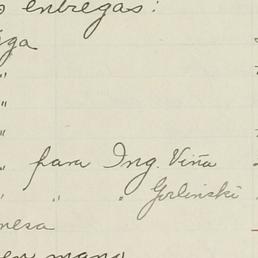 entregas:
"
"
"
" para Ing. Viña
" " " Gorlinski
en mano